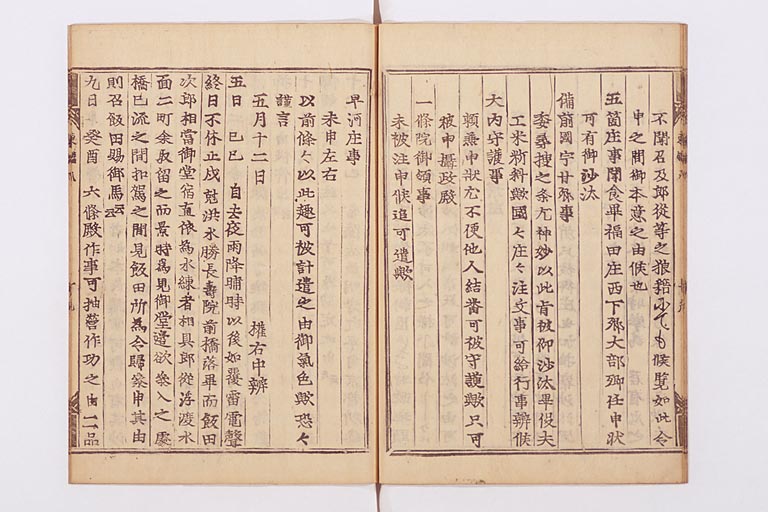 不聞召及郎從等之狼藉少〻も候覧如此令
申之間御本意之由候也
五箇庄事聞食畢福田庄西下郷大部郷任申状
可有御沙汰
備前國宇甘郷事
委尋捜之条尤神妙以此旨被仰沙汰畢但夫
工米新料歟國〻庄〻注文事可給行事辨候
大内守護事
頼兼申状尤不便他人結番可被守護歟只可
被申攝政殿
一條院御領事
未被注申候追可遣歟
早河庄事
未申左右
以前條〻以此趣可被計遣之由御氣色歟恐〻
謹言
五月十二日 權右中辨
五日 己巳 自去夜雨降晡時以後如覆雷電聲
終日不休止戌尅洪水勝長壽院前橋落畢而飯田
次郎相當御堂宿直依為水練者相具郎從浮渡水
面二町余取留之而景時為見御堂邊欲參入之處
橋已流之間扣駕之間見飯田所為令歸參申其由
則召飯田賜御馬云云
九日 癸酉 六條殿作事可抽營作功之由二品